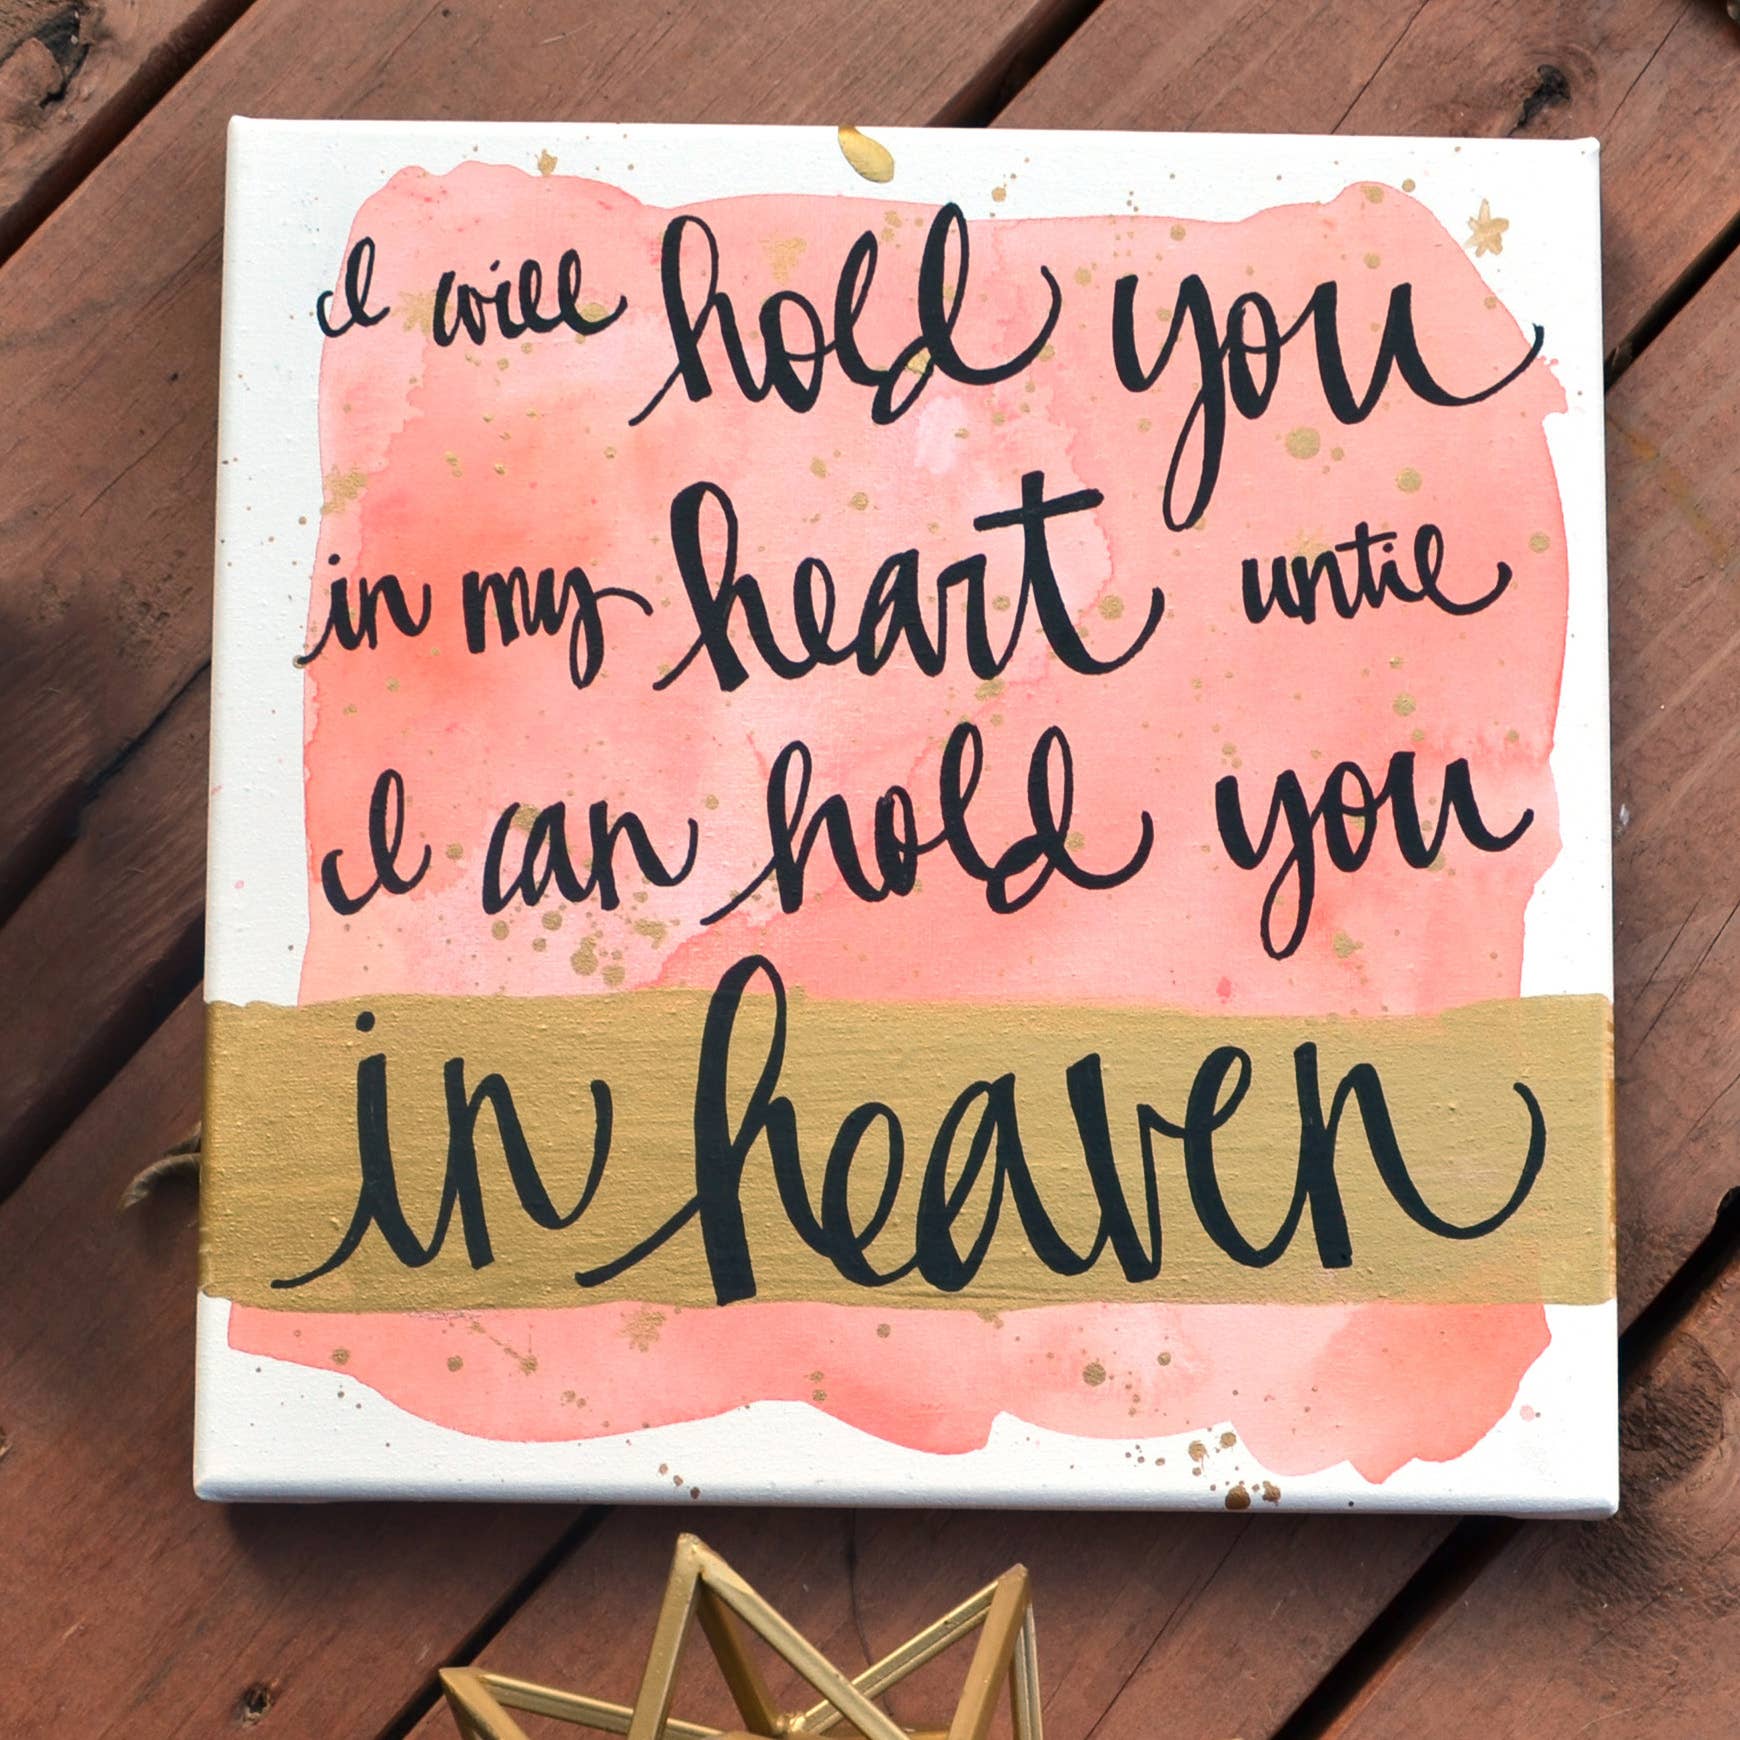 I will hold you
in my heart until
I can hold you
in heaven